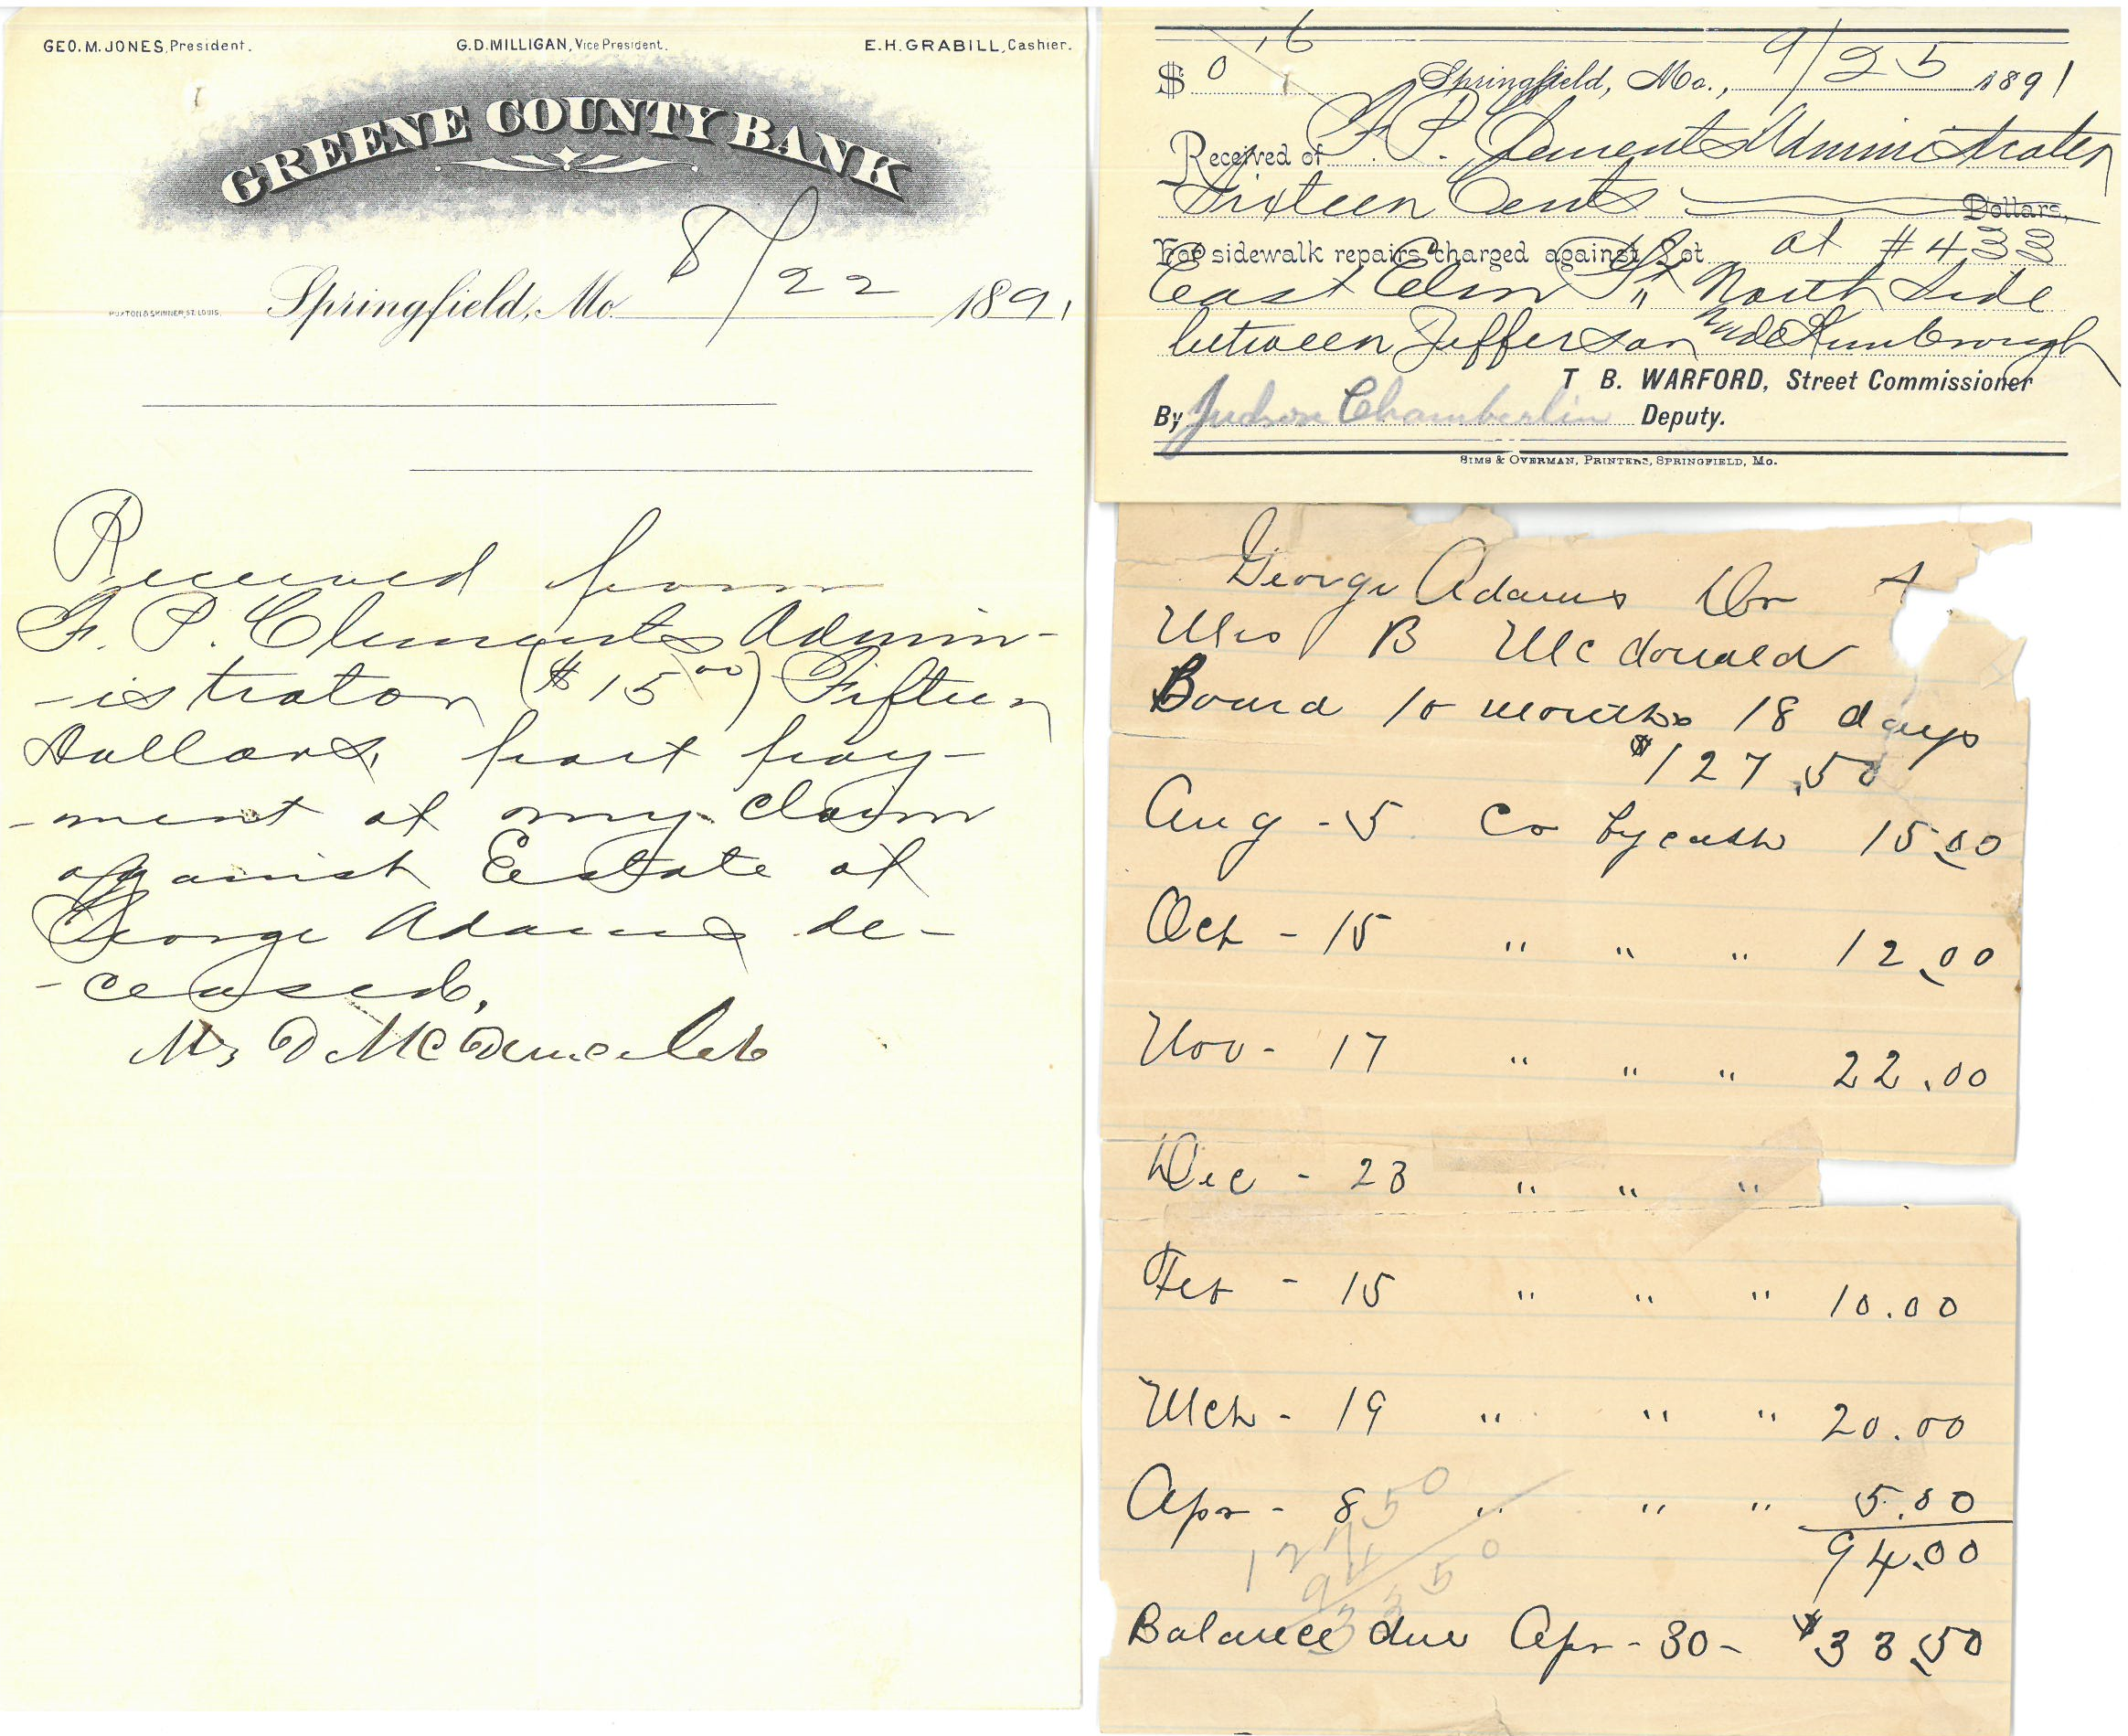 GEO. M. JONES, President. G. D. MILLIGAN, Vice President. E. H. GRABILL, Cashier.
GREENE COUNTY BANK
Springfield, Mo. 8/22 1891
Received from
F. P. Clements Admin-
-istrator ($15 00) Fifteen
Dollars, part pay-
-ment of my claim
against Estate of
George Adams de-
-ceased,
$ 0 .16 Springfield, Mo., 9/25 1891
Received of F. P. Clements Administrator
Sixteen Cents Dollars,
For sidewalk repairs charged against Lot at #433
East Elm St North Side
between Jefferson and Kimbrough
T B. WARFORD, Street Commissioner
By Judson Chamberlin Deputy.
SIMS & OVERMAN, PRINTERS, SPRINGFIELD, MO.
George Adams Dr
Mrs B McDonald
Board 10 months 18 days
$127.50
Aug - 5 Cr by cash 15.00
Oct - 15 " " " 12.00
Nov - 17 " " " 22.00
Dec - 23 " " "
Feb - 15 " " " 10.00
Mch - 19 " " " 20.00
Apr - 8 " " " 5.00
94.00
127 50
94
33 50
Balance due Apr - 30 - $33.50